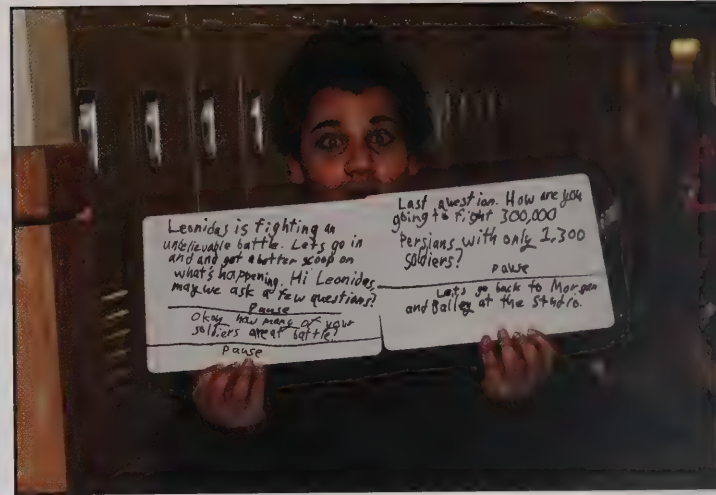 Leonidas is fighting an
unbelievable battle. Lets go in
and and get a better scoop on
what's happening. Hi Leonidas,
may we ask a few questions?
Pause
Okay how many of your
soldiers are at battle?
Pause
Last question. How are you
going to fight 300,000
Persians with only 1,300
soldiers?
Pause
Lets go back to Morgan
and Bailey at the